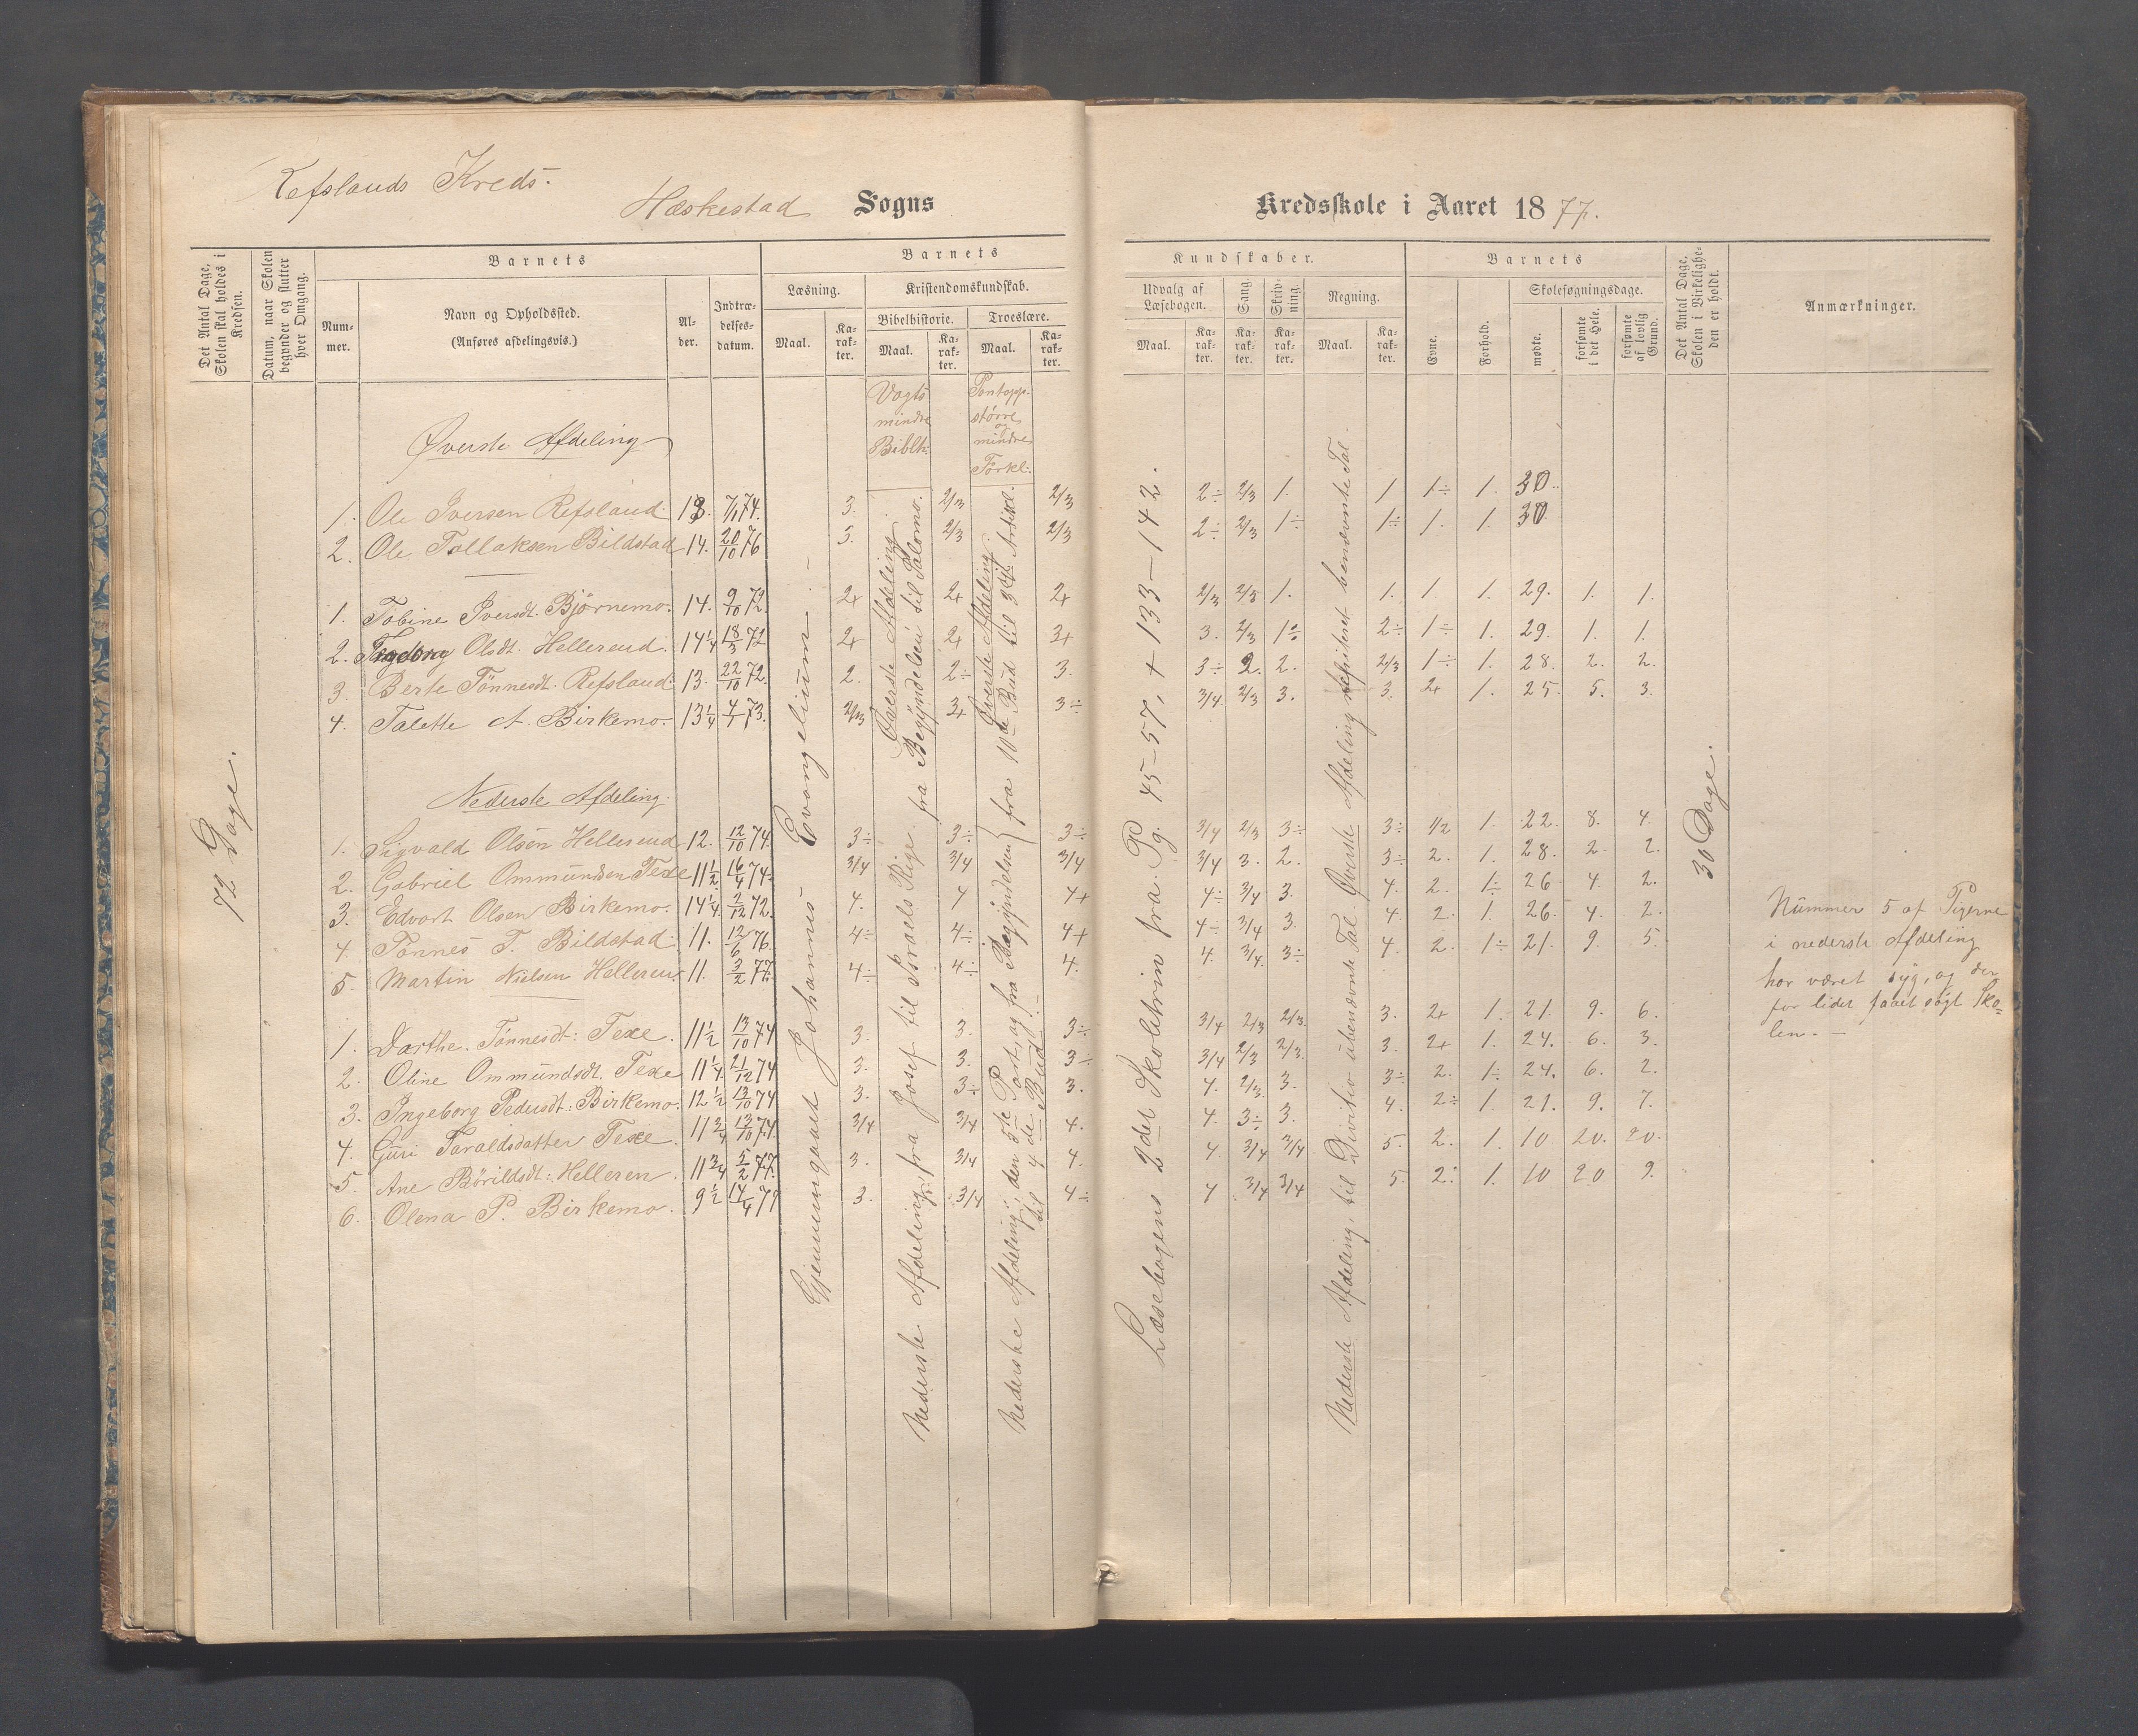 Refslands Kreds.
Heskestad Sogns
Kredsskole i Aaret 1877.
Det Antal Dage, Skolen skal holdes i Kredsen.
Datum, naar Skolen begynder og slutter hver Omgang.
Barnets
Nummer.
Navn og Opholdssted.
(Anføres afdelingsvis.)
Alder.
Indtrædelsesdatum.
Barnets
Læsning.
Kristendomskundskab.
Bibelhistorie.
Troeslære.
Maal.
Karakter.
Maal.
Karakter.
Maal.
Karakter.
Kundskaber.
Udvalg af Læsebogen.
Sang.
Skrivning.
Regning.
Maal.
Karakter.
Karakter.
Karakter.
Maal.
Karakter.
Barnets
Evne.
Forhold.
Skolesøgningsdage.
mødte.
forsømte i det Hele.
forsømte af lovlig Grund.
Det Antal Dage, Skolen i Virkeligheden er holdt.
Anmærkninger.
Vogts mindre Biblh:
Pontopp. større og mindre Forkl:
Øverste Afdeling
1. Ole Iversen Refsland. 13. 7/1 74. 3. 2/3 2/3 2÷ 2/3 1. 1 1÷ 1. 30.
2. Ole Tollaksen Bildstad 14. 20/10 76 3. 2/3 2/3 2÷ 2/3 1÷ 1÷ 1. 1. 30.
1. Tobine Iversdt. Bjørnemo. 14. 9/10 72. 2+ 2+ 2+ 2/3 2/3 1. 1. 1. 1. 29. 1. 1.
2. Olsdt. Hellerend. 14 1/4 18/3 72 2+ 2+ 3+ 3. 2/3 1÷ 2÷ 1÷ 1. 29. 1. 1.
3. Berte Tønnesdt. Refsland. 13. 22/10 72. 2. 2÷ 3. 3÷ 2. 2. 2/3 1÷ 1. 28. 2. 2.
4. Talette A. Birkemo. 13 1/4 4/1 73. 2/3 3+ 3÷ 3/4. 2/3 3. 3. 2+ 1. 25. 5. 3.
Nederste Afdeling.
1. Sigvald Olsen Hellerend 12. 12/10 74. 3÷ 3÷ 3÷ 3/4 2/3 3÷ 3÷ 1/2 1. 22. 8. 4.
2. Gabriel Ommundsen Texe 11 1/2 16/4 74. 3/4 3/4 3/4 3/4 3. 2. 3÷ 2. 1. 28. 2. 2.
3. Edvart Olsen Birkemo. 14 1/4. 2/12 72. 4. 4 4+ 4÷ 3/4 3. 4. 2. 1÷ 26 4. 2.
4. Tønnes T. Bildstad. 11. 12/6 76. 4÷ 4÷ 4+ 4÷ 3/4 3. 4. 2. 1. 26. 4. 2.
5. Martin Nielsen Helleren. 11. 3/2 77. 4÷ 4÷ 4. 4. 3/4. 3÷ 4. 2. 1÷ 21. 9. 5.
1. Darthe. Tønnesdt: Texe. 11 1/2 13/10 74 3. 3. 3÷ 3/4 2/3 2/3. 3. 2+ 1. 21. 9. 6.
2. Oline Ommundsdt. Texe 11 1/4 21/12 74 3. 3. 3÷ 3/4 2/3 2/3. 3. 2+ 1. 24. 6. 3.
3. Ingeborg Pedersdt: Birkemo. 12 1/2 13/10 74 3. 3÷ 3. 4. 2/3. 3. 3÷ 2. 1÷ 24. 6. 2.
4. Guri Taraldsdatter Texe. 11 3/4 13/10 74. 3/4 3/4 4. 4. 3÷ 3. 4. 2÷ 1. 21. 9. 7.
5. Ane Børildsdt: Helleren. 11 3/4 5/2 77. 3. 3/4 4. 4. 3/4 3/4 5. 2. 1. 10 20. 20.
6. Olena P. Birkemo. 9 1/2 14/4 77 3. 3/4 4÷ 4 3/4 3/4 5. 2. 1. 10 20 9.
72 Dage.
Gjennemgaaet Johannes Evangelium. –
Øverste Afdeling fra Begyndelsen til Salomo.
Nederste Afdeling, fra Josef til Israels Rige.
Øverste Afdeling fra 10de Bud til 3die Artikl.
Nederste Afdeling; den 5te Part, og fra Begyndelsen til 4de Bud. –
Læsebogens 2det Skoletrin fra Pg. 45–57, + 133–142.
Øverste Afdeling repiteret benævnte Tal.
Nederste Afdeling, til Divition ubenævnte Tal.
30 Dage.
Nummer 5 af Pigerne
i nederste Afdeling
har været syg, og der
for lidet faaet søgt Sko-
len. –